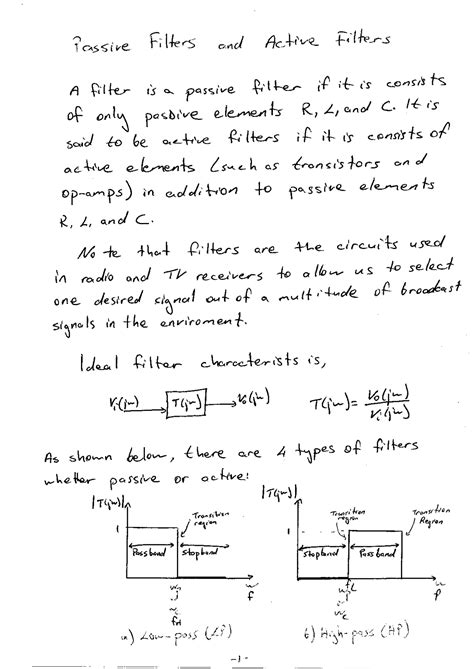 Passive Filters and Active Filters
A filter is a passive filter if it is consists
of only passive elements R, L, and C. It is
said to be active filters if it is consists of
active elements (such as transistors and
op-amps) in addition to passive elements
R, L, and C.
Note that filters are the circuits used
in radio and TV receivers to allow us to select
one desired signal out of a multitude of broadcast
signals in the enviroment.
Ideal filter characterists is,
Vi(jw) T(jw) Vo(jw) T(jw) = Vo(jw) / Vi(jw)
As shown below, there are 4 types of filters
whether passive or active:
|T(jw)| |T(jw)|
Transition region Transition region Transition Region
1 1
Passband Stopband Stopband Passband
w f w f
a) Low-pass (LP) b) High-pass (HP)
-1-